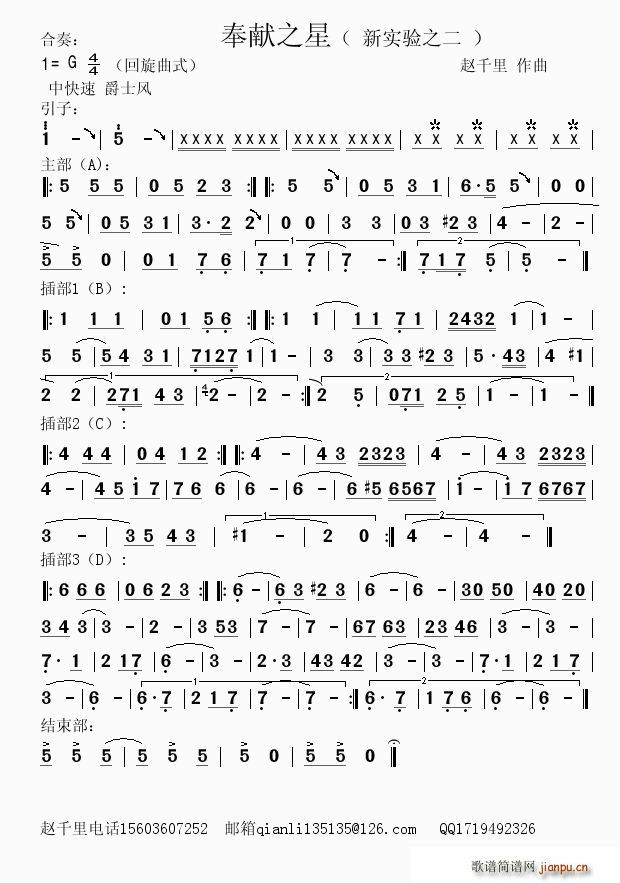 合奏： 奉献之星（ 新实验之二 ）
1= G 4/4 （回旋曲式） 赵千里 作曲
中快速 爵士风
引子：
1 - | 5 - | xxxx xxxx | xxxx xxxx | x x x x | x x x x |
主部(A)：
|: 5 5 5 | 0 5 2 3 :| |: 5 5 | 0 5 3 1 | 6·5 5 | 0 0 |
5 5 | 0 5 3 1 | 3·2 2 | 0 0 | 3 3 | 03 #23 | 4 - | 2 - |
5 5 0 | 0 1 7 6 | 7 1 7 | 7 - :| 717 5 | 5 - |
插部1（B）：
|: 1 1 1 | 01 56 :| |: 1 | 11 71 | 2432 1 | 1 - |
5 5 | 54 31 | 7127 1 | 1 - | 3 3 | 33 #23 | 5·43 | 4 #1 |
2 2 | 271 43 | 42 - | 2 - :| 2 5 | 071 25 | 1 - | 1 - |
插部2（C）：
|: 4 44 | 04 12 :| |: 4 - | 43 2323 | 4 - | 43 2323 |
4 - | 45 17 | 76 6 | 6 - | 6 #5 6567 | 1 - | 17 6767 |
3 - | 35 43 | #1 - | 2 0 :| 4 - | 4 - |
插部3（D）：
|: 6 6 6 | 06 23 :| |: 6 - | 63 #23 | 6 - | 6 - | 30 50 | 40 20 |
34 3 | 3 - | 2 - | 3 53 | 7 - | 7 - | 67 63 | 23 46 | 3 - | 3 - |
7·1 | 2 17 | 6 - | 3 - | 2·3 | 43 42 | 3 - | 3 - | 7·1 | 2 17 |
3 - | 6 - | 6·7 | 2 17 | 7 - | 7 - :| 6·7 | 1 76 | 6 - | 6 - |
结束部：
5 5 5 | 5 5 | 5 0 | 5 5 0 |
赵千里电话15603607252 邮箱qianli135135@126.com QQ1719492326
歌谱简谱网
jianpu.cn